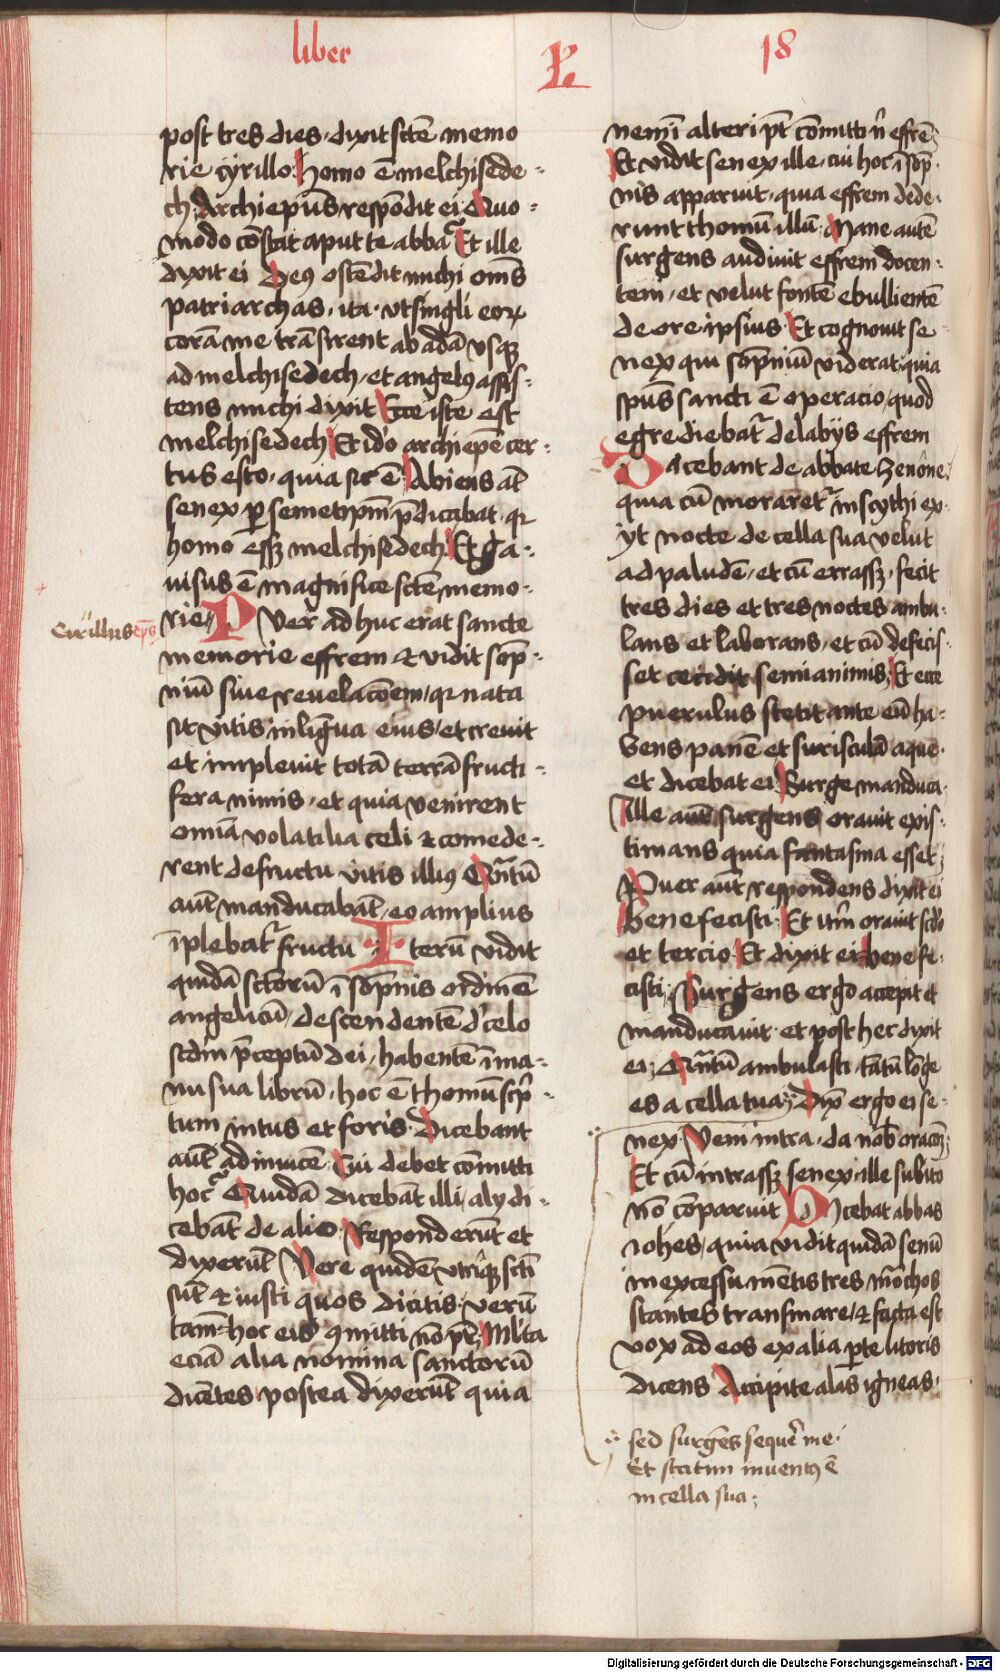 liber
L
18
post tres dies · dixit scte memo
rie cyrillo · Homo ē melchisede
ch · Archiepūs respōdit ei Quo
modo cōstat aput te abba Et ille
dixit ei Deus ostēdit michi om̄s
patriarchas · ita · vt singli eor
corā me trāsirent ab adā vsqꝫ
ad melchisedech · et angelus assis
tens michi dixit Ecce iste est
melchisedech Et iďo archiepē cer
tus esto · quia sic ē Abiens āt
senex per semetipm̄ p̄dicabat · qr
homo essꝫ melchisedech Et ga
uisus ē magnifice scte memo
rie
Cirillus eps
Puer ad huc erat sancte
memorie effrem et vidit sop
niū siue reuelacōem · qr nata
sit vitis in ligua eius · et creuit
et impleuit totā terrā fructi
fera nimis · et quia venirent
omīa volatilia celi et comede
rent de fructu vitis illius Quātū
aut manducabāt · eo amplius
īplebat fructu Iterū vidit
quidā sctorū ī sopnis ordinē
angelicū · descendentē de celo
scdm p̄ceptū dei · habentē ī ma
nu sua librū · hoc ē thomū scp
tum intus et foris · Dicebant
aut ad inuicē · Cui debet cōmitti
hoc Quidā dicebāt illi · alij di
cebāt de alio · Responderūt et
dixerūt Vere quidē vtiqꝫ scti
sūt et iusti quos dicitis · verū
tam̄ hoc eis ꝯmitti nō pt · Mlta
eciā alia nomina sanctorū
dicētes postea dixerūt quia
nemī alteri pt cōmitti n̄ effrē
Et vidit senex ille · cui hoc ī sop
nis apparuit · quia effrem dede
runt thomū illū · Mane autē
surgens audiuit effrem docen
tem · et velut fontē ebullientē
de ore ipsius · Et cognouit se
nex qui sopniū viderat · quia
spūs sancti ē operacio quod
egrediebat de labijs effrem
Dicebant de abbate Zenōne
quia cū moraret in scythi ex
ijt nocte de cella sua velut
ad paludē · et cū errassꝫ · fecit
tres dies et tres noctes ambu
lans et laborans · et cū defecis
set cecidit semianimis · Et ecce
puerulus stetit ante eū ha
bens panē et surisculā aque ·
et dicebat ei · Surge manduca
Ille aut surgens orauit exis
timans quia fantasma esset
Puer aut respondens dixit ei
Bene fecisti · Et itm̄ orauit scdo
et tercio · Et dixit ei bene fe
cisti · Surgens ergo accepit et
manducauit · et post hec dixit
ei · Quātū ambulasti · tātū lōge
es a cella tua · Dix̄ ergo ei se
nex · Veni intra · da nob oracōꝫ
Et cū intrassꝫ senex ille subito
nō cōparuit Dicebat abbas
iohes · quia vidit quidā senū
in excessu mētis tres mōchos
stantes trans mare · et facta est
vox ad eos ex alia pte litoris
dicens Accipite alas igneas ·
sed surgēs sequere me ·
Et statim inuentus ē
in cella sua ·
Digitalisierung gefördert durch die Deutsche Forschungsgemeinschaft - DFG